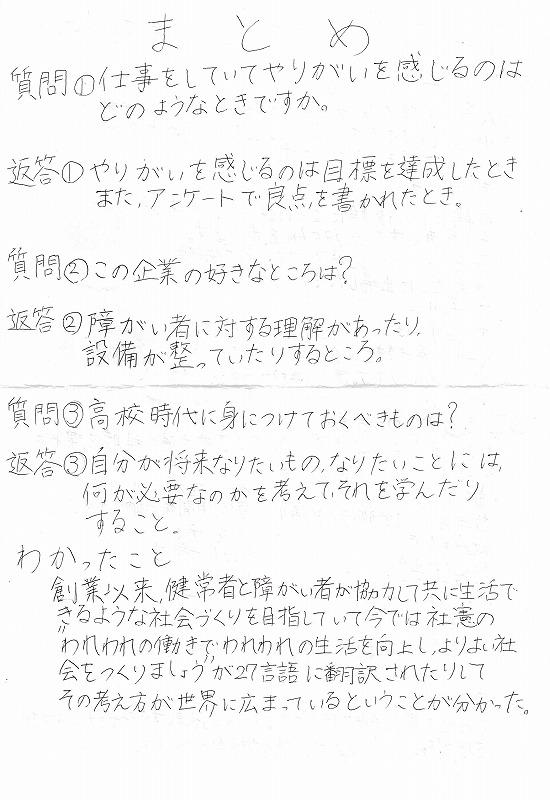 まとめ
質問①仕事をしていてやりがいを感じるのは
どのようなときですか。
返答①やりがいを感じるのは目標を達成したとき
また,アンケートで良点を書かれたとき。
質問②この企業の好きなところは?
返答②障がい者に対する理解があったり,
設備が整っていたりするところ。
質問③高校時代に身につけておくべきものは?
返答③自分が将来なりたいもの,なりたいことには,
何が必要なのかを考えて,それを学んだり
すること。
わかったこと
創業以来,健常者と障がい者が協力して共に生活で
きるような社会づくりを目指していて今では社憲の
"われわれの働きでわれわれの生活を向上し,よりよい社
会をつくりましょう"が27言語に翻訳されたりして
その考え方が世界に広まっているということが分かった。